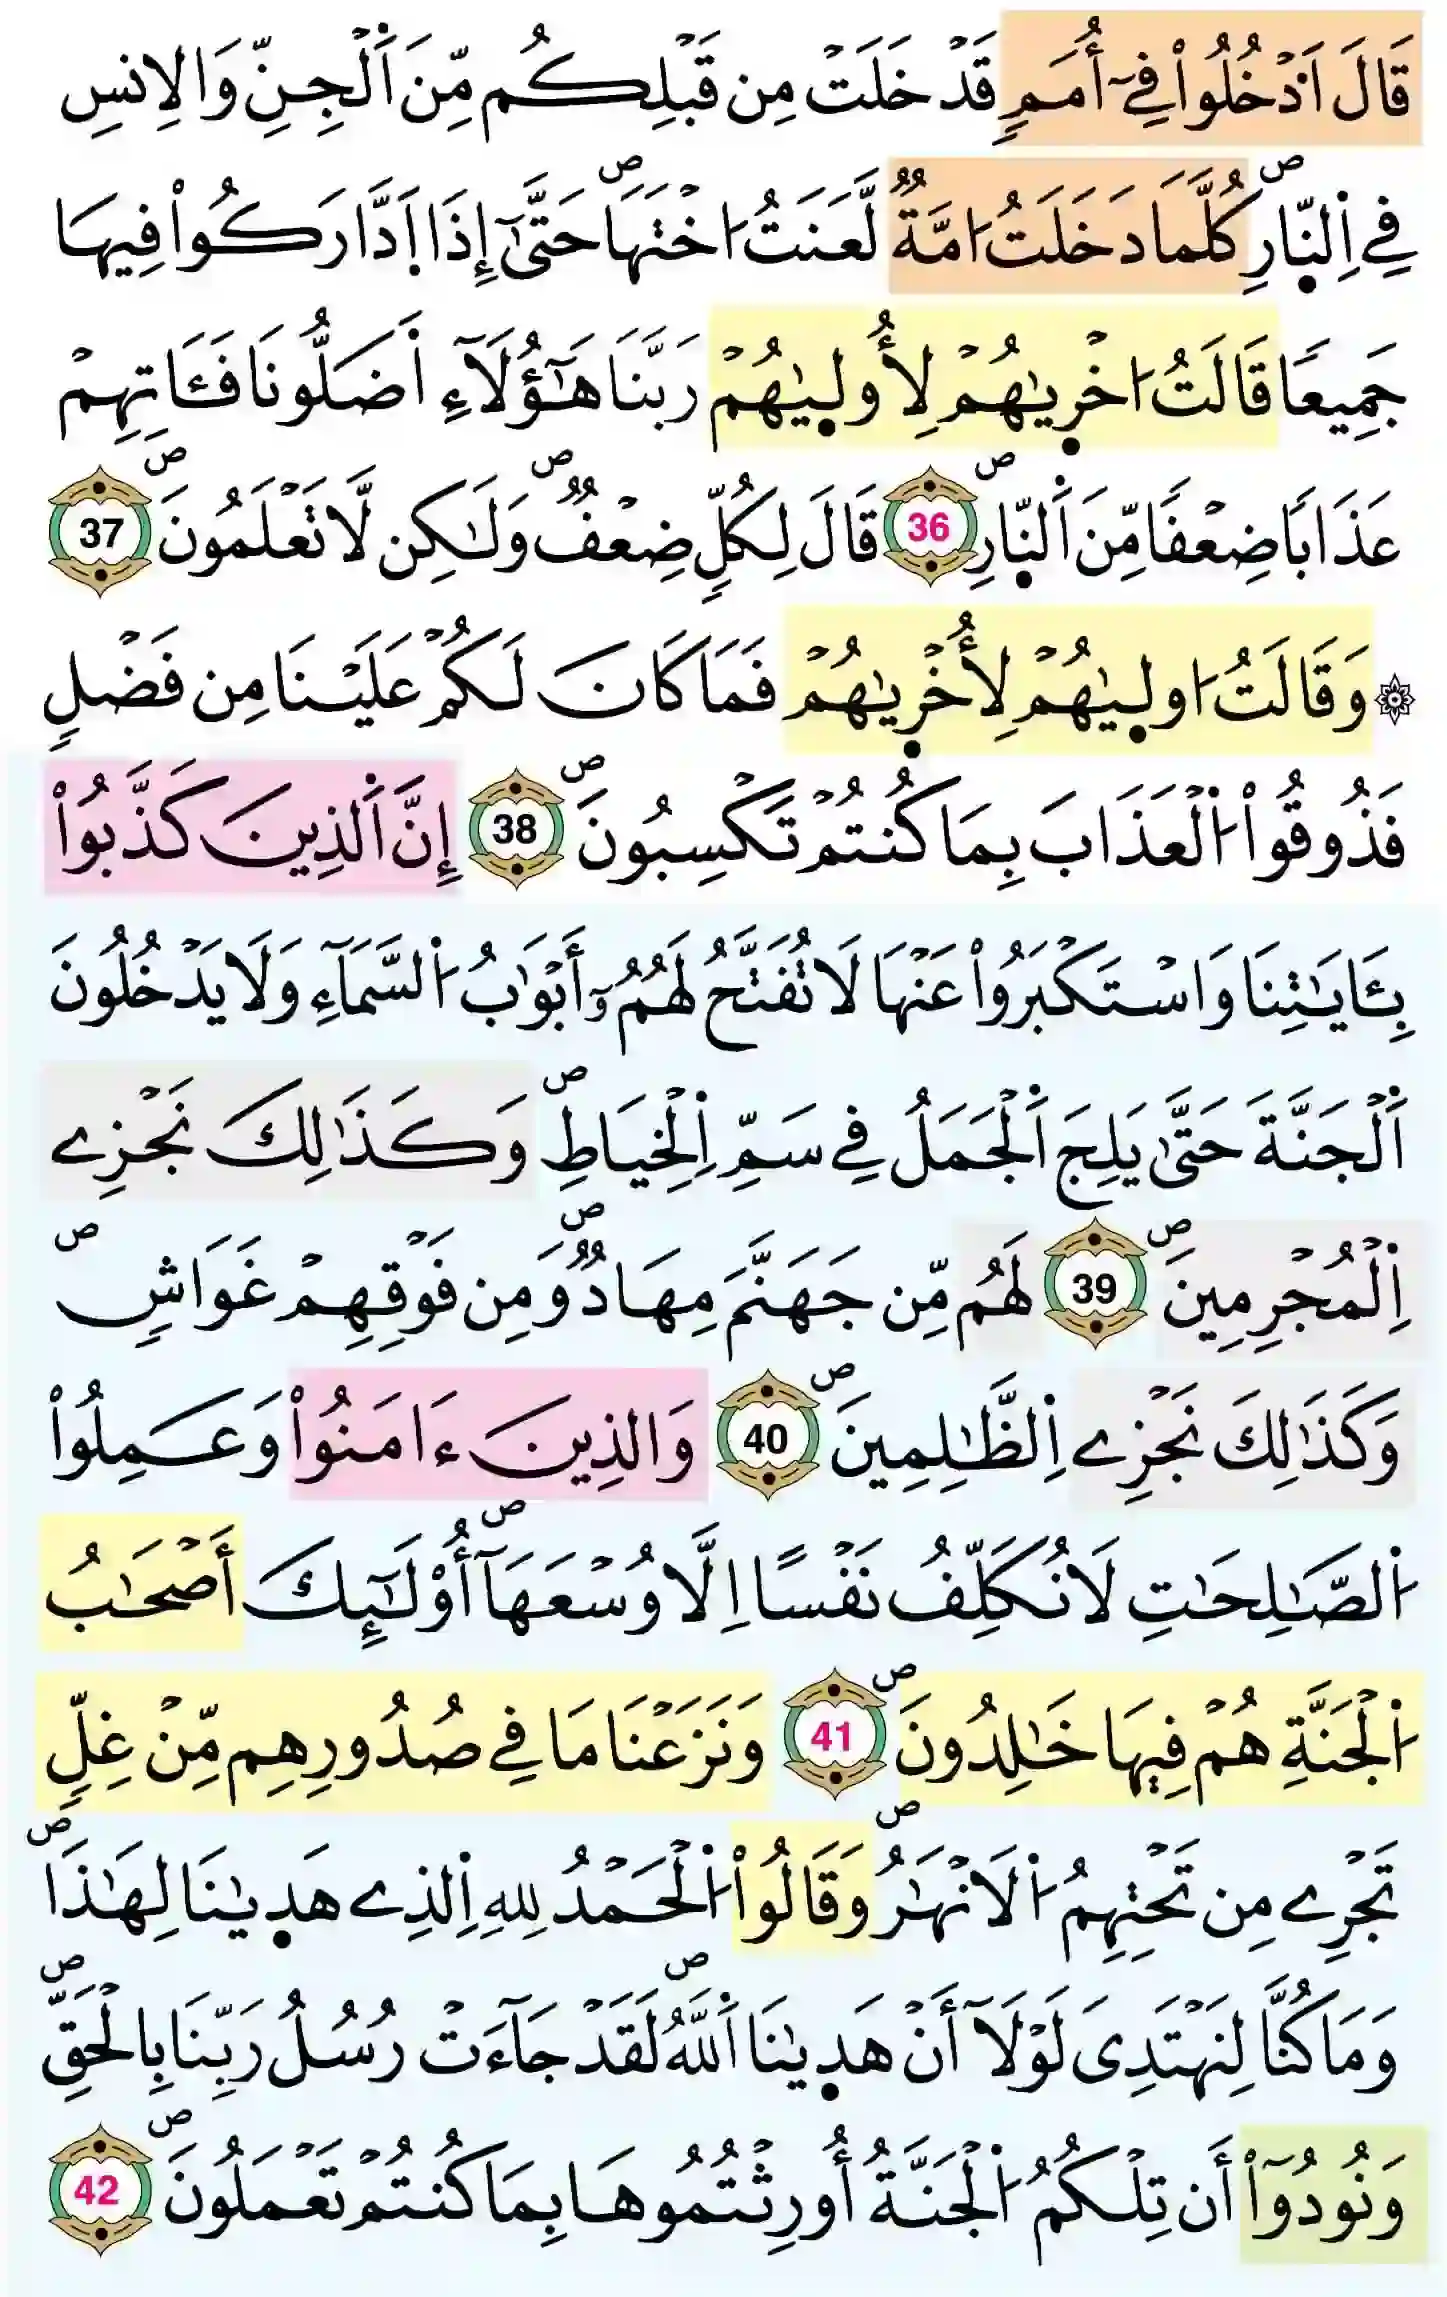 قَالَ اَ۟دْخُلُواْ فِےٓ أُمَمٖ قَدْ خَلَتْ مِن قَبْلِكُم مِّنَ اَ۬لْجِنِّ وَالِانسِ
فِے اِ۬لنّ۪ارِۖ كُلَّمَا دَخَلَتُ ا۟مَّةٞ لَّعَنَتُ ا۟خْتَهَاۖ حَتَّىٰٓ إِذَا اَ۪دَّارَكُواْ فِيهَا
جَمِيعاٗ قَالَتُ ا۟خْر۪يٰهُمْ لِأُول۪يٰهُمْ رَبَّنَا هَٰٓؤُلَآءِ ا۬ضَلُّونَا فَـَٔاتِهِمْ
عَذَاباٗ ضِعْفاٗ مِّنَ اَ۬لنّ۪ارِۖ 36 قَالَ لِكُلّٖ ضِعْفٞۖ وَلَٰكِن لَّا تَعْلَمُونَۖ 37
۞ وَقَالَتُ ا۟ول۪يٰهُمْ لِأُخْر۪يٰهُمْ فَمَا كَانَ لَكُمْ عَلَيْنَا مِن فَضْلٖ
فَذُوقُواْ اُ۬لْعَذَابَ بِمَا كُنتُمْ تَكْسِبُونَۖ 38 إِنَّ اَ۬لذِينَ كَذَّبُواْ
بِـَٔايَٰتِنَا وَاسْتَكْبَرُواْ عَنْهَا لَا تُفَتَّحُ لَهُمُۥٓ أَبْوَٰبُ اُ۬لسَّمَآءِ وَلَا يَدْخُلُونَ
اَ۬لْجَنَّةَ حَتَّىٰ يَلِجَ اَ۬لْجَمَلُ فِے سَمِّ اِ۬لْخِيَاطِۖ وَكَذَٰلِكَ نَجْزِے
اِ۬لْمُجْرِمِينَۖ 39 لَهُم مِّن جَهَنَّمَ مِهَادٞۖ وَمِن فَوْقِهِمْ غَوَاشٖۖ
وَكَذَٰلِكَ نَجْزِے اِ۬لظَّٰلِمِينَۖ 40 وَالذِينَ ءَامَنُواْ وَعَمِلُواْ
اُ۬لصَّٰلِحَٰتِ لَا نُكَلِّفُ نَفْساً اِلَّا وُسْعَهَآۖ أُوْلَٰٓئِكَ أَصْحَٰبُ
اُ۬لْجَنَّةِ هُمْ فِيهَا خَٰلِدُونَۖ 41 وَنَزَعْنَا مَا فِے صُدُورِهِم مِّنْ غِلّٖ
تَجْرِے مِن تَحْتِهِمُ اُ۬لَانْهَٰرُۖ وَقَالُواْ اُ۬لْحَمْدُ لِلهِ اِ۬لذِے هَد۪يٰنَا لِهَٰذَاۖ
وَمَا كُنَّا لِنَهْتَدِيَ لَوْلَآ أَنْ هَد۪يٰنَا اَ۬للَّهُۖ لَقَدْ جَآءَتْ رُسُلُ رَبِّنَا بِالْحَقِّۖ
وَنُودُوٓاْ أَن تِلْكُمُ اُ۬لْجَنَّةُ أُورِثْتُمُوهَا بِمَا كُنتُمْ تَعْمَلُونَۖ 42